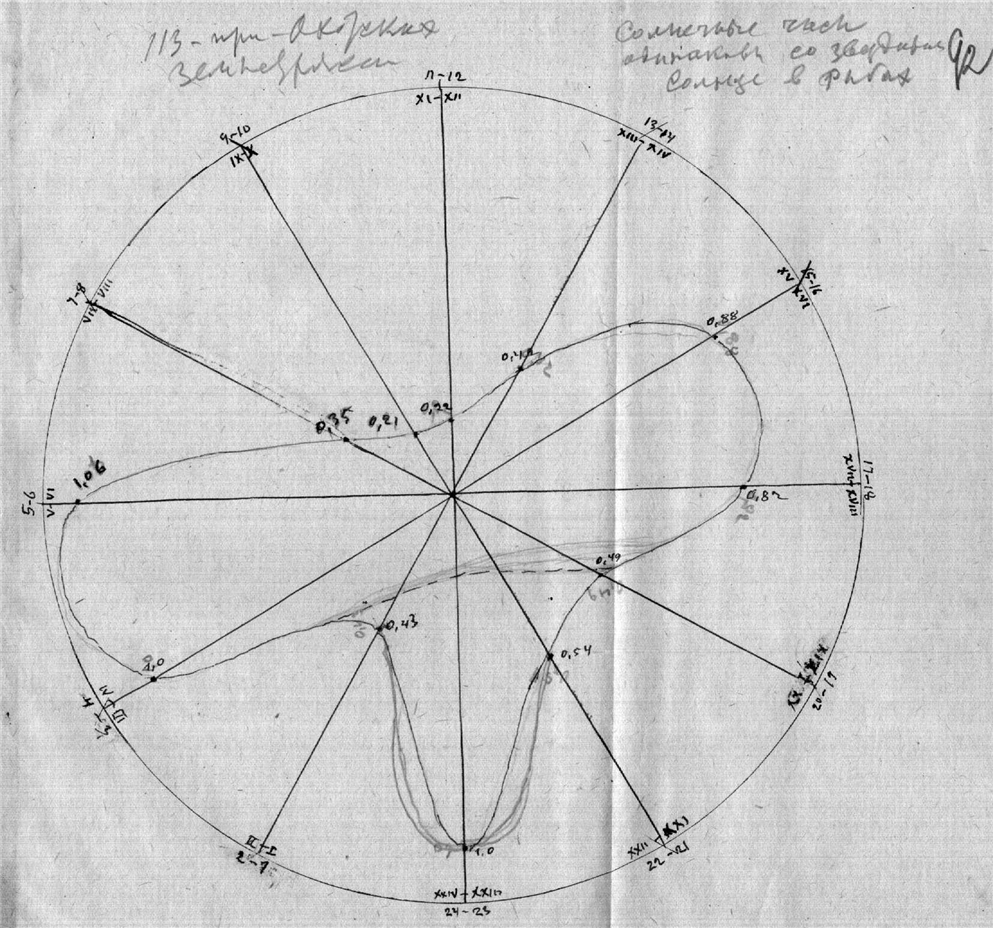 113 - при - Охотских
Солнечные часы
землетрясен
одинаковы со звездными
Солнце в Рыбах
92
11-12
XI-XII
9-10
IX-X
13-14
XIII-XIV
7-8
VII-VIII
15-16
XV
XVI
0,88
0,22
0,21
0,35
1,06
5-6
V-VI
17-18
XVII-XVIII
0,82
0,49
0,43
0,54
1,0
3-4
III
20-19
1,0
II-I
2-1
XXII
XXI
22-21
XXIV-XXIII
24-23